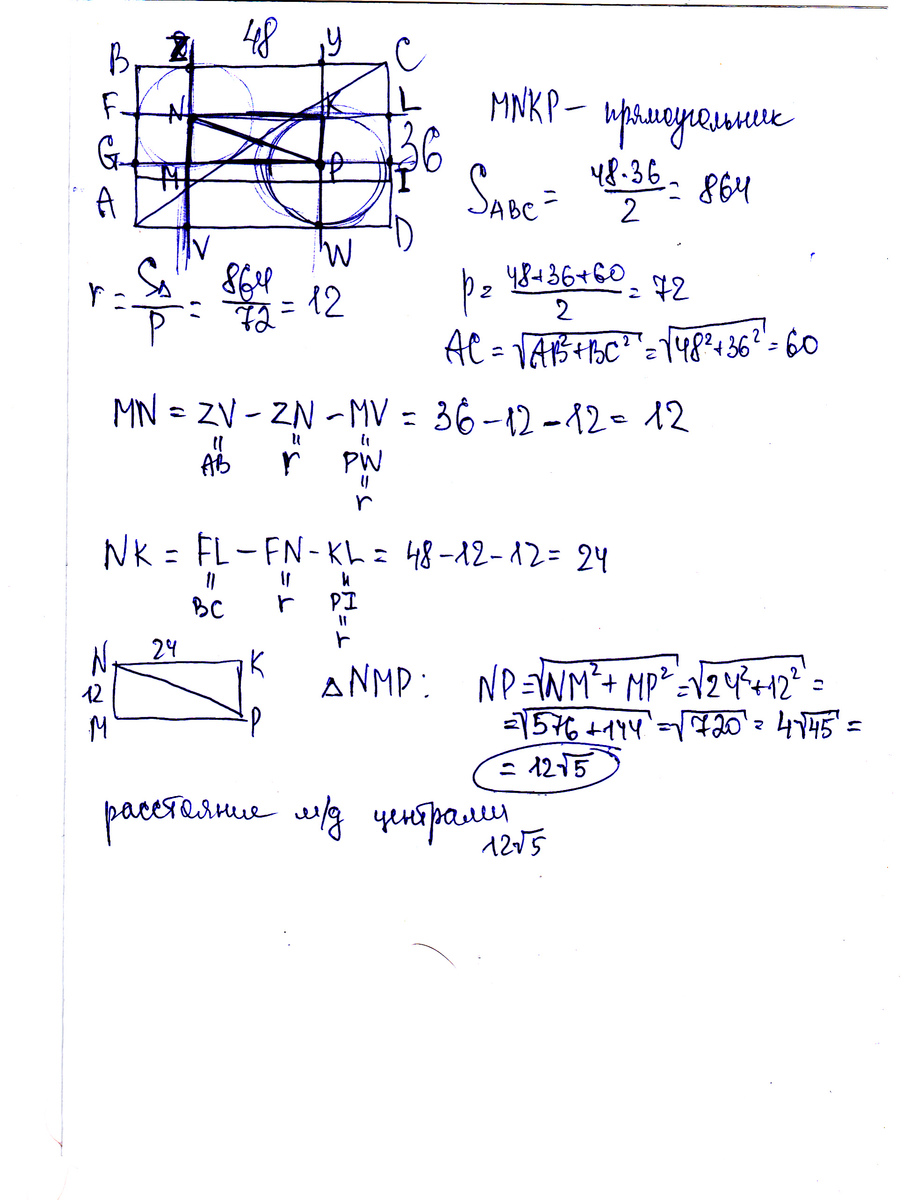 48
B Z Y C
F N K L
G M P I 36
A V W D
MNKP – прямоугольник
S_ABC = 48·36/2 = 864
r = S_Δ/p = 864/72 = 12
p = (48+36+60)/2 = 72
AC = √(AB²+BC²) = √(48²+36²) = 60
MN = ZV – ZN – MV = 36 – 12 – 12 = 12
" " "
AB r PW
"
r
NK = FL – FN – KL = 48 – 12 – 12 = 24
" " "
BC r PI
"
r
24
N K
12
M P
Δ NMP: NP = √(NM² + MP²) = √(24² + 12²) =
= √(576 + 144) = √720 = 4√45 =
= 12√5
расстояние м/д центрами
12√5